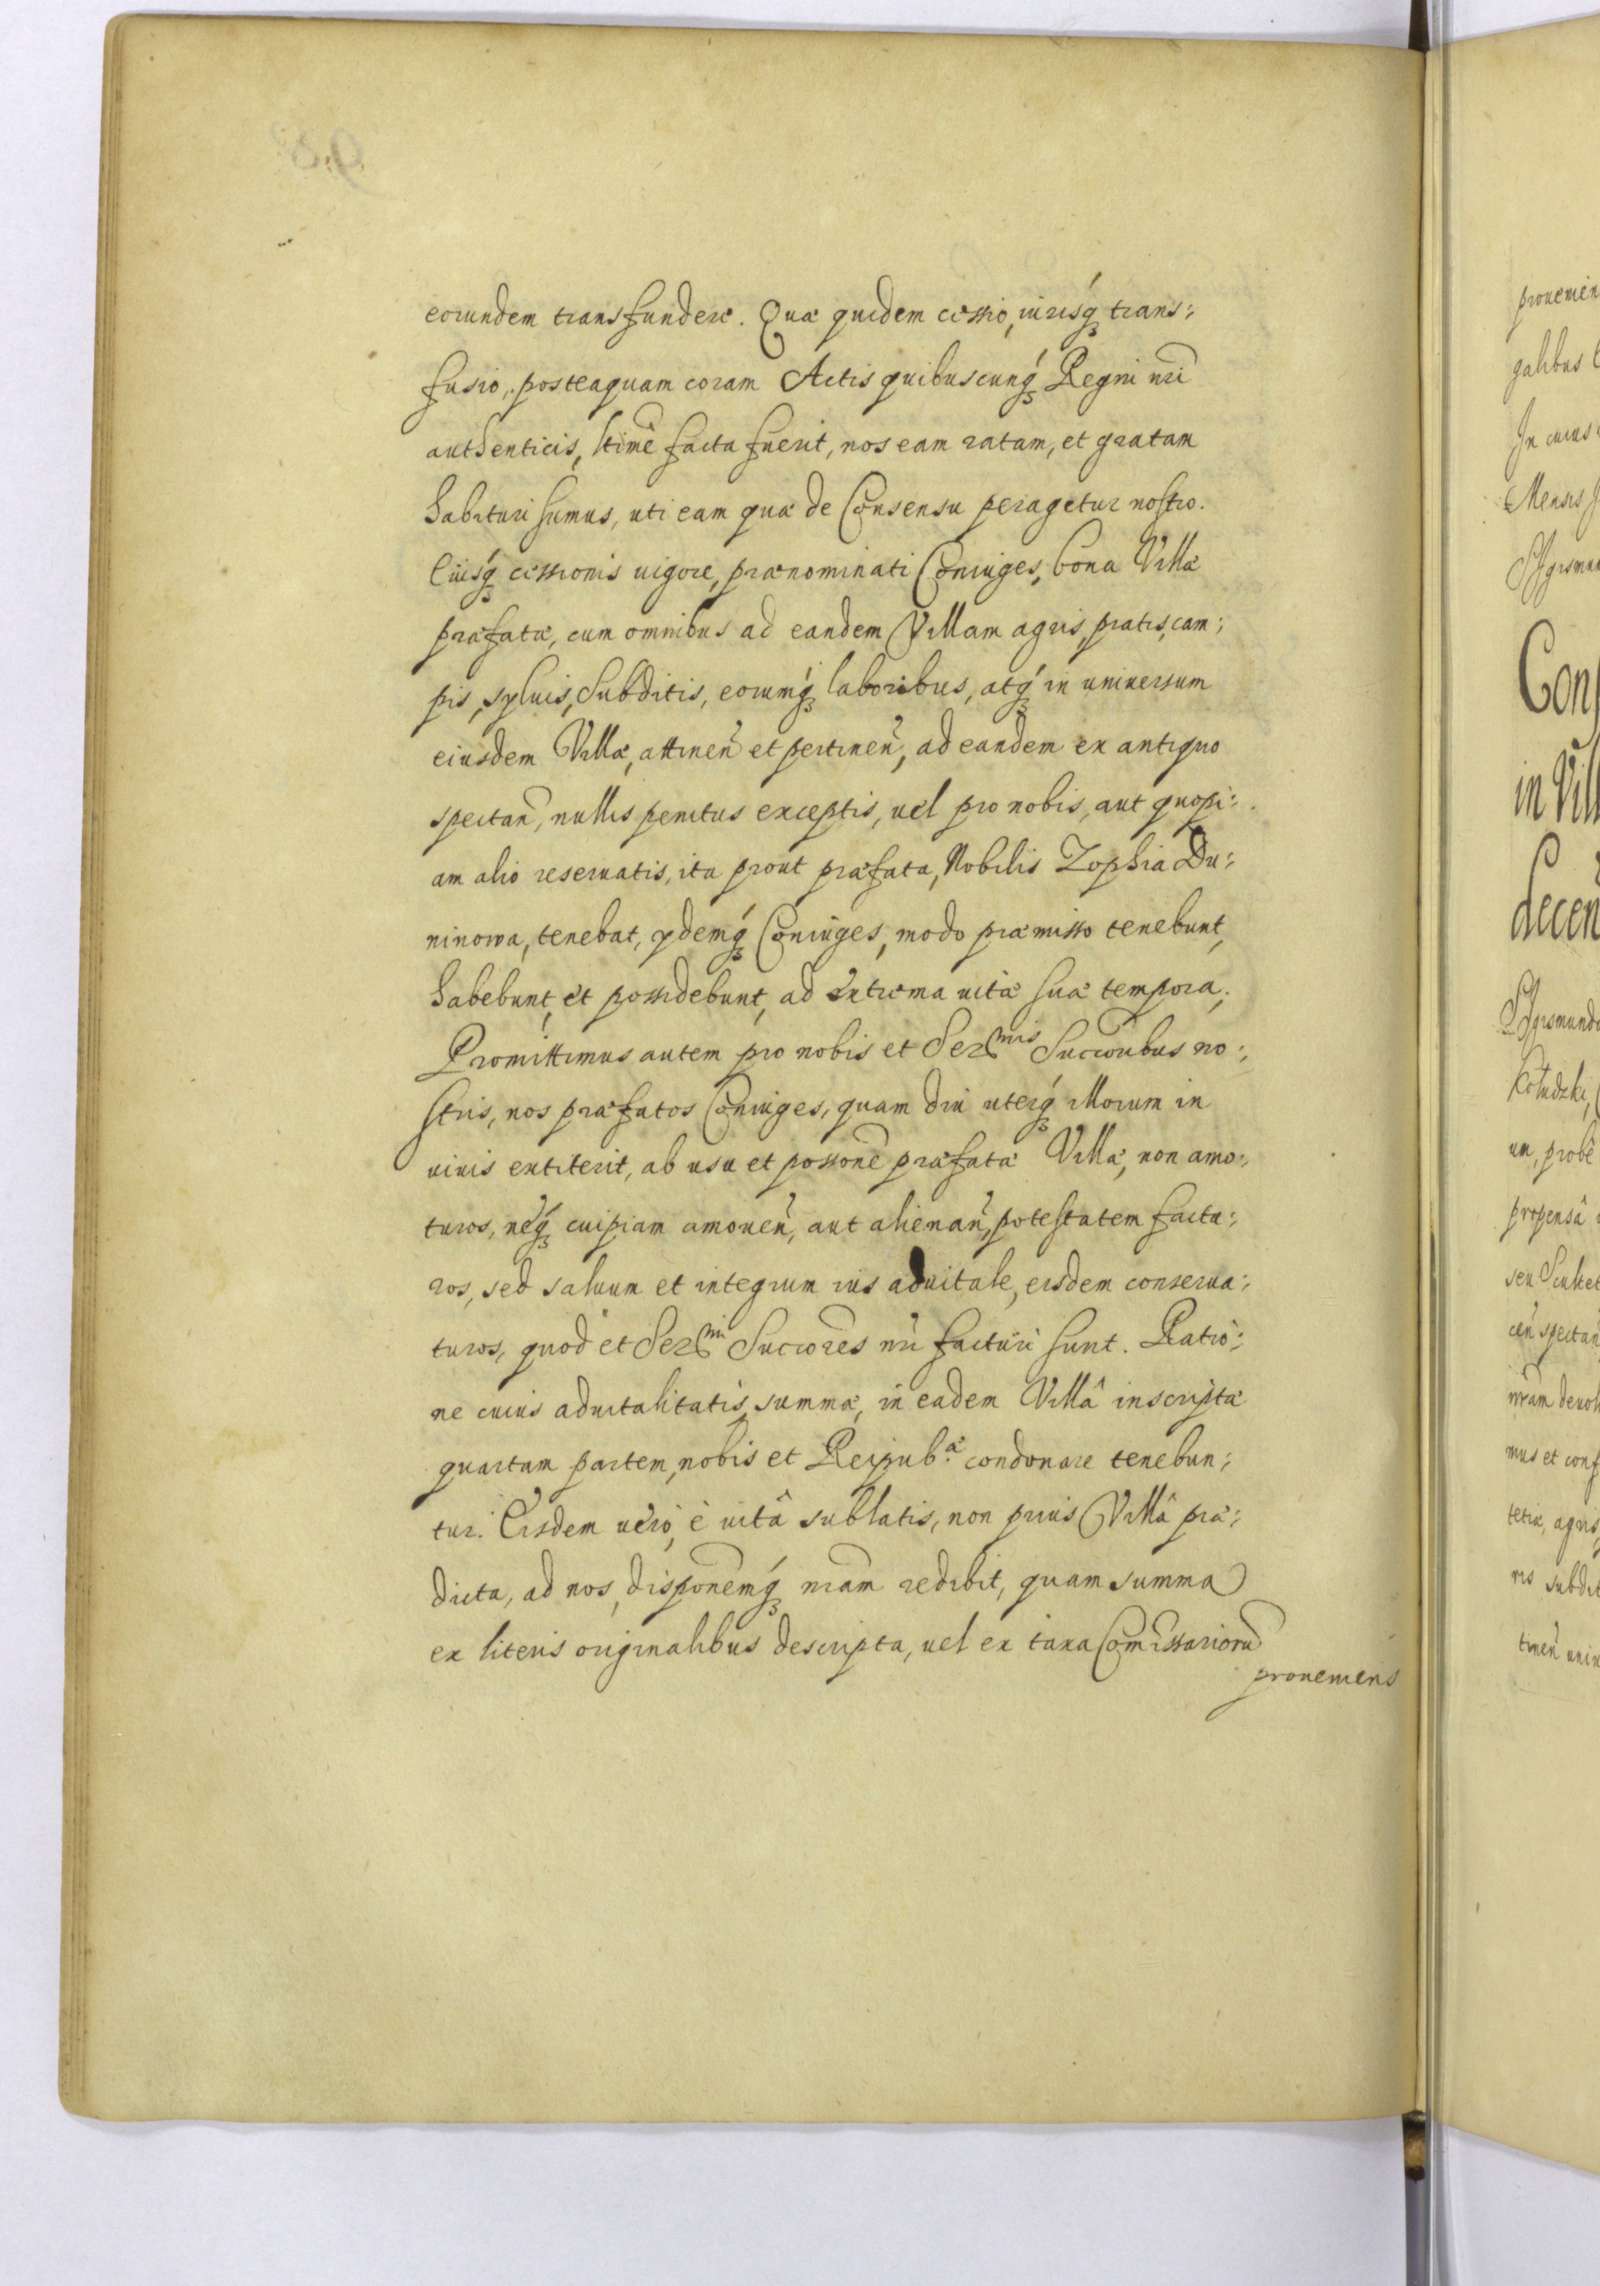 eorundem transfundere. Quæ quidem cessio, iurisq́ꝫ trans:
fusio, posteaquam coram Actis quibuscunq́ꝫ Regni nr̃i
authenticis, ltimẽ facta fuerit, nos eam ratam, et gratam
habituri sumus, uti eam quæ de Consensu peragetur nostro.
Cuiusq́ꝫ cessionis uigore, prænominati Coniuges, bona Villæ
præfatæ, cum omnibus ad eandem Villam agris, pratis, cam:
pis, syluis, Subditis, eorumq́ꝫ laboribus, atq́ꝫ in uniuersum
eiusdem Villæ, attineñ et pertineñ, ad eandem ex antiquo
spectañ, nullis penitus exceptis, uel pro nobis, aut quopi:
am alio reseruatis, ita prout præfata, Nobilis Zophia Du:
ninowa, tenebat, ydemq́ꝫ Coniuges, modo præmisso tenebunt,
habebunt, et possidebunt, ad extrema uitæ suæ tempora,
Promittimus autem pro nobis et Serᵐⁱˢ Succoribus no:
stris, nos præfatos Coniuges, quam diu uterq́ꝫ illorum in
uiuis extiterit, ab usu et possonẽ præfatæ Villæ, non amo:
turos, neq́ꝫ cuipiam amoueñ, aut alienañ, potestatem factu:
ros, sed saluum et integrum ius aduitale, eisdem conserua:
turos, quod et Serᵐⁱ Succores nr̃i facturi sunt. Ratio:
ne cuius aduitalitatis, summæ, in eadem Villâ inscriptæ
quartam partem, nobis et Reipub:ᵃᵉ condonare tenebun:
tur. Eisdem uerò, è uitâ sublatis, non prius Villa præ:
dicta, ad nos, disponẽmq́ꝫ nr̃am redibit, quam summa
ex literis originalibus descripta, uel ex taxa Comissariorũ
proueniens
prouenien
galibus
In cuius
Mensis
Sigismun
Cons
in Vill
decen
Sigismundu
Kołudzki,
um, probè
propensâ
seu Scultet
ceñ spectañ
nr̃am deuol
mus et conf
tetiæ, agris,
ris subdit
tineñ uniu